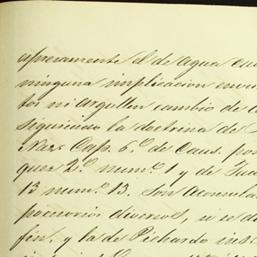 espresamente d.l de agua cu
ninguna implicacion encu
tos ni argullen cambio de a
siguiendo la doctrina de
Cap. 6.º de Caus. por
quez 2.º num.º 1 y de Jua
13 num.º 13. Son Acumula
posesorios diversos, si se d
fin, y la de Pichardo inst